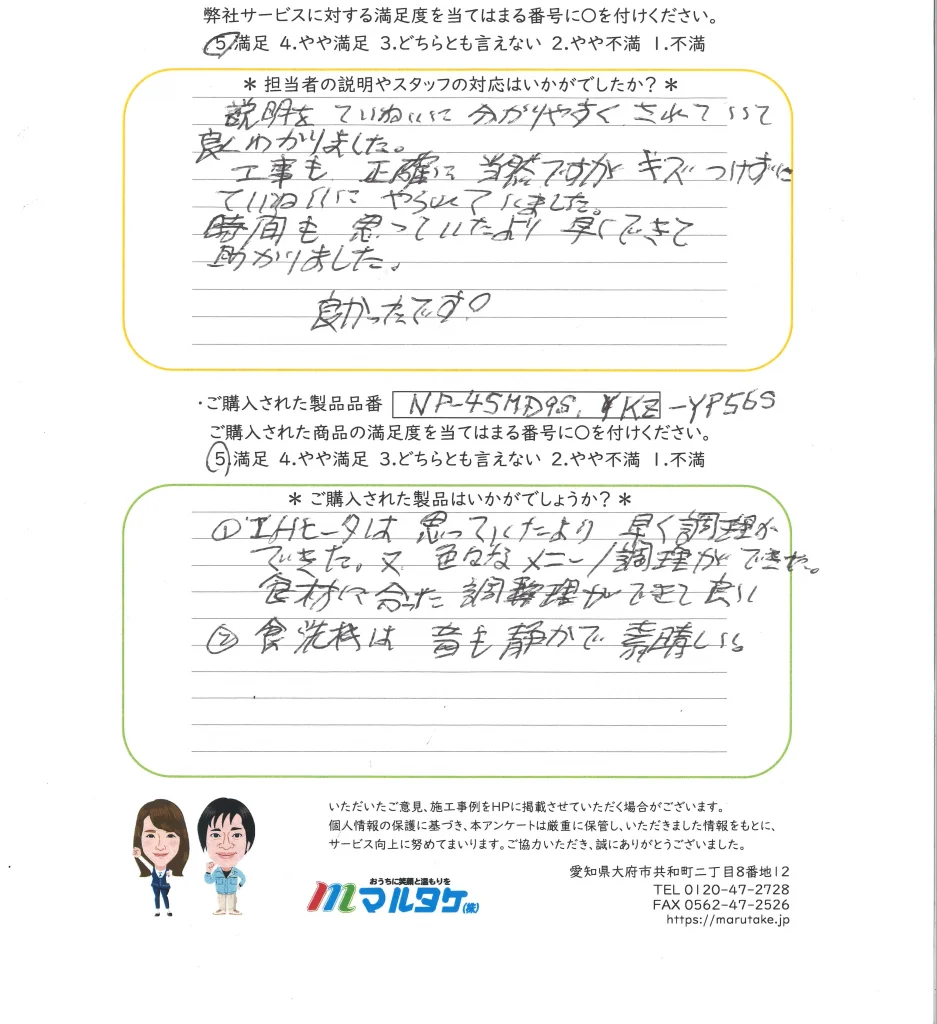 弊社サービスに対する満足度を当てはまる番号に〇を付けください。
5.満足 4.やや満足 3.どちらとも言えない 2.やや不満 1.不満
＊ 担当者の説明やスタッフの対応はいかがでしたか？ ＊
説明を ていねいに 分かりやすく されていて
良くわかりました。
工事も 正確に 当然ですが キズ つけずに
ていねいに やられていました。
時間も 思っていたより 早くできて
助かりました。
良かったです！
・ご購入された製品品番 NP-45MD9S, KZ-YP56S
ご購入された商品の満足度を当てはまる番号に〇を付けください。
5.満足 4.やや満足 3.どちらとも言えない 2.やや不満 1.不満
＊ ご購入された製品はいかがでしょうか？ ＊
① IHヒータは 思っていたより 早く調理が
できた。又 色々なメニュー調理ができた。
食材に合った 調理ができて良い
② 食洗機は 音も静かで 素晴しい。
いただいたご意見、施工事例をHPに掲載させていただく場合がございます。
個人情報の保護に基づき、本アンケートは厳重に保管し、いただきました情報をもとに、
サービス向上に努めてまいります。ご協力いただき、誠にありがとうございました。
おうちに笑顔と温もりを
マルタケ(株)
愛知県大府市共和町二丁目8番地12
TEL 0120-47-2728
FAX 0562-47-2526
https://marutake.jp